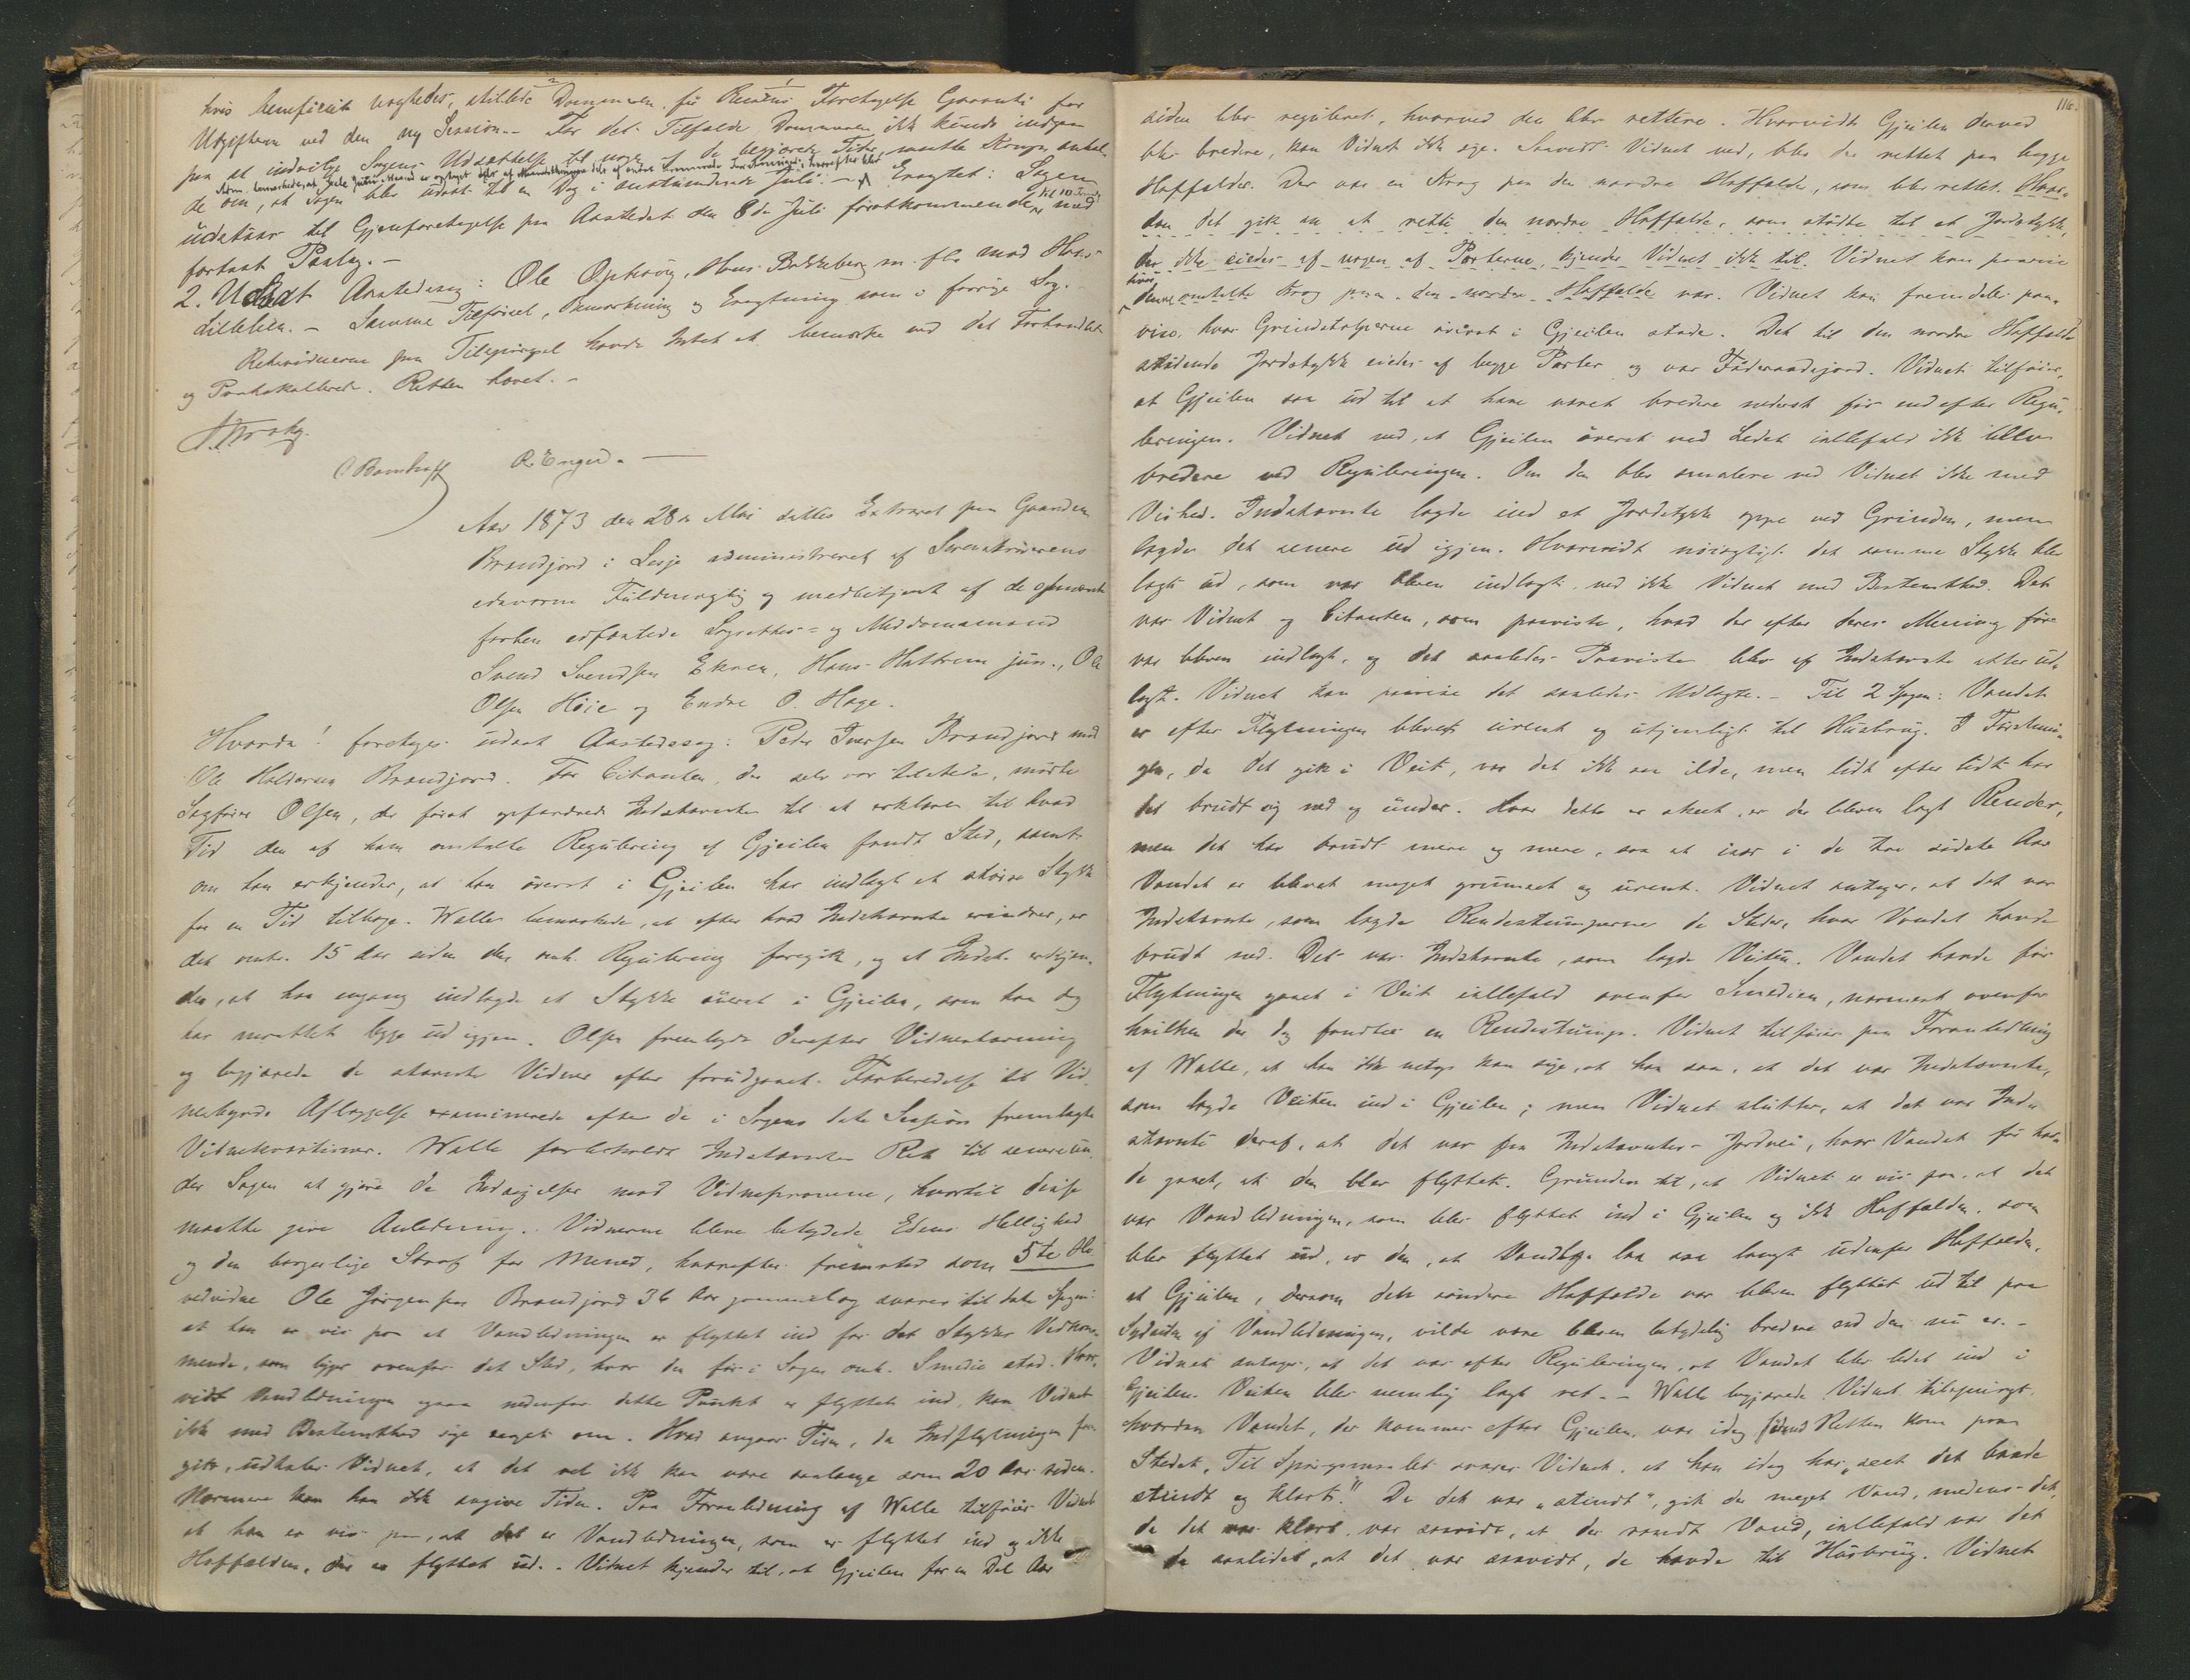 hvis beneficiet negtedes, stillede Dommeren før Rettens Foretagelse Garanti for
Utgifterne ved den ny Session. - For det Tilfælde Dommeren ikke kunde indgaa
paa at indvilge Sagens Udsættelse til nogen af de begjærede Tider, maatte Krogn anhol-
de om, at Sagen blev udsat til en Dag i anstundende Juli. - Eragtet: Sagen
udstaar til Gjenforetagelse paa Aastedet den 8de Juli førstkommende med
fortsat Paalæg. -
2. Udsat Aastedssag: Ole Ophoug, Hans Bakkeberg m. fl. mod Hans
Lillelien. - Samme Tilførsel, Bemærkning og Eragtning som i forrige Sag. -
Retsvidnerne paa Tilspørgsel havde Intet at bemærke ved det Forhandlede
og Protokollerede. Retten hævet. -
R. Enger. -
Aar 1873 den 28de Mai sattes Extraret paa Gaarden
Brandjord i Lesje administreret af Sorenskriverens
edsvorne Fuldmægtig og medbetjent af de opnævnte
forhen edfæstede Lagrettes- og Meddomsmænd
Svend Svendsen Ekren, Hans Hattrem jun., Ole
Olsen Høie og Endre O. Hage.
Hvorda! foretages udsat Aastedssag: Peder Iversen Brandjord mod
Ole Haldorsen Brandjord. For Citanten, der selv var tilstede, mødte
Sagfører Olsen, der først opfordrede Indstævnte til at erklære til hvad
Tid den af ham omtalte Regulering af Gjeilen fandt Sted, samt
om han erkjender, at han øverst i Gjeilen har indlagt et større Stykke
for en Tid tilbage. Walle bemærkede, at efter hvad Indstævnte erindrer, er
det omtr. 15 Aar siden den omh. Regulering foregik, og at Indst. erkjen-
der, at han engang indlagde et Stykke øverst i Gjeilen, som han dog
har maattet legge ud igjen. Olsen fremlagde derefter Vidnestævning
og begjærede de stævnte Vidner efter forudgaaet Forberedelse til Vid-
nesbyrds Aflæggelse examinerede efter de i Sagens sidste Session fremlagte
Vidnekvæstioner. Walle forbeholdt Indstævnte Ret til senere un-
der Sagen at gjøre de Indsigelser mod Vidneprovene, hvortil disse
maatte give Anledning. Vidnerne bleve betydede Edens Hellighed
og den borgerlige Straf for Mened, hvorefter fremstod som 5te Ho-
vedvidne Ole Jørgensen Brandjord 36 Aar gammel og svarer til 1ste Spgm:
at han er vis paa at Vandledningen er flyttet ind for det Stykkes Vedkom-
mende, som ligger ovenfor det Sted, hvor den før i Sagen omh. Smedie stod. Hvor-
vidt Vandledningen ogsaa nedenfor dette Punkt er flyttet ind, kan Vidnet
ikke med Bestemthed sige noget om. Hvad angaar Tiden, da Indflytningen fore-
gik, udtaler Vidnet, at det vel ikke kan være saalænge som 20 Aar siden.
Nærmere kan han ikke angive Tiden. Paa Foranledning af Walle tilføier Vidnet
at han er vis paa, at det er Vandledningen, som er flyttet ind og ikke
Haffælden, der er flyttet ud. - Vidnet kjender til, at Gjeilen for en Del Aar
116.
siden blev reguleret, hvorved den blev rettere. Hvorvidt Gjeilen derved
blev bredere, kan Vidnet ikke sige. Saavidt Vidnet ved, blev der rettet paa begge
Haffælder. Der var en Krog paa den nordre Haffælde, som blev rettet. Hvor-
dan det gik an at rette den nordre Haffælde, som stødte til et Jordstykke,
der ikke eiedes af nogen af Parterne, kjender Vidnet ikke til. Vidnet kan paavise
hvor denne omtalte Krog paa den nordre Haffælde var. Vidnet kan fremdeles paa-
vise, hvor Grindstolperne øverst i Gjeilen stode. Det til den nordre Haffælde
stødende Jordstykke eiedes af begge Parter og var Føderaadsjord. Vidnet tilføier,
at Gjeilen saa ud til at have været bredere nederst før end efter Regu-
leringen. Vidnet ved, at Gjeilen øverst ved Ledet iallefald ikke blev
bredere ved Reguleringen. Om den blev smalere ved Vidnet ikke med
Vished. Indstævnte lagde ind et Jordstykke oppe ved Grinden, men
lagde det senere ud igjen. Hvorvidt nøiagtigt det samme Stykke blev
lagt ud, som var bleven indlagt, ved ikke Vidnet med Bestemthed. Det
var Vidnet og Citanten, som paaviste, hvad der efter deres Mening før
var bleven indlagt, og det saaledes Paaviste blev af Indstævnte atter ud-
lagt. Vidnet kan paavise det saaledes Udlagte. - Til 2 Spgm: Vandet
er efter Flytningen blevet urent og utjenligt til Husbrug. I Førstnin-
gen, da det gik i Veit, var det ikke saa ilde, men lidt efter lidt har
det brudt sig ned og under. Hvor dette er skeet, er der bleven lagt Render,
men det har brudt mere og mere, saa at især i de tre sidste Aar
Vandet er blevet meget grumset og urent. Vidnet antager, at det var
Indstævnte, som lagde Rendestumperne de Steder, hvor Vandet havde
brudt ned. Det var Indstævnte, som lagde Veiten. Vandet havde før
Flytningen gaaet i Veit iallefald ovenfor Smedien, nærmest ovenfor
hvilken der dog fandtes en Rendestump. Vidnet tilføier paa Foranledning
af Walle, at han ikke netop kan sige, at han saa, at det var Indstævnte,
som lagde Veiten ind i Gjeilen; men Vidnet slutter, at det var Ind-
stævnte deraf, at det var fra Indstævntes Jordvei, hvor Vandet før hav-
de gaaet, at den blev flyttet. Grunden til, at Vidnet er vis paa, at det
var Vandledningen, som blev flyttet ind i Gjeilen og ikke Haffælden, som
blev flyttet ud, er den, at Vandlege laa saa langt udenfor Haffælden,
at Gjeilen, dersom den søndre Haffælde var bleven flyttet ud til paa
Sydsiden af Vandledningen, vilde være bleven betydelig bredere end den nu er. -
Vidnet antager, at det var efter Reguleringen, at Vandet blev ledet ind i
Gjeilen. Veiten blev nemlig lagt ret. - Walle begjærede Vidnet tilspurgt,
hvordan Vandet, der kommer efter Gjeilen, var idag førend Retten kom paa
Stedet. Til Spørgsmaalet svarer Vidnet, at han idag har "seet det baade
stindt og klart." Da det var "stindt", gik der meget Vand, medens det,
da det var klart, var saavidt, at der randt Vand, iallefald var det
da saalidet, at det var saavidt, de havde til Husbrug. Vidnet